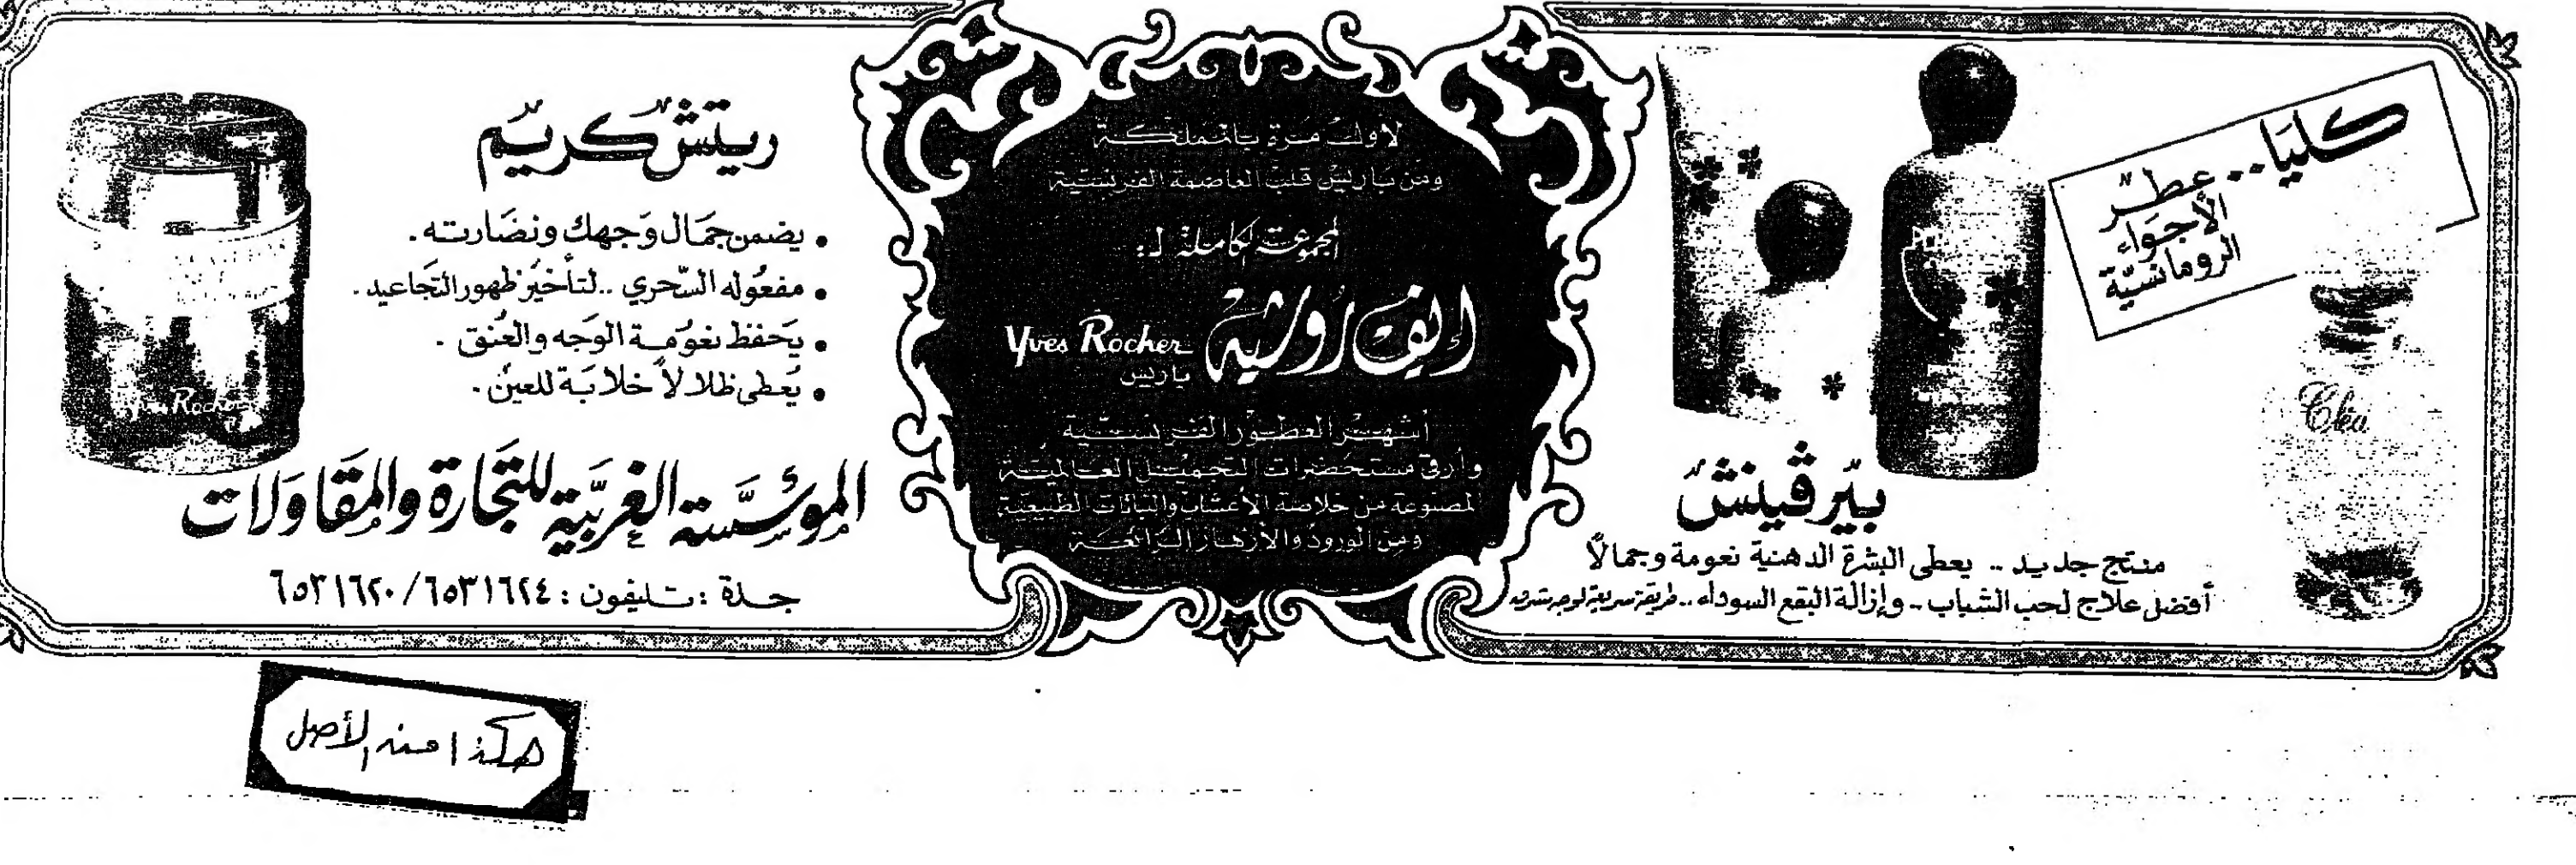 كليا.. عطر
الأجواء
الرومانسيّة
Cléa
بيرڤينش
منتج جديد .. يعطى البشرة الدهنية نعومة وجمالاً
أفضل علاج لحب الشباب .. وإزالة البقع السوداء .. طريقة سريعة
لأول مرة بالمملكة
ومن باريس قلب العاصمة الفرنسية
المجموعة الكاملة لـ:
إيف روشيه Yves Rocher
باريس
أشهر العطور الفرنسية
وأرقى مستحضرات التجميل العالمية
المصنوعة من خلاصة الأعشاب والنباتات الطبيعية
ومن الورود والأزهار الرائعة
ريتش كريم
• يضمن جمال وجهك ونضارته.
• مفعوله السّحري .. لتأخير ظهور التجاعيد.
• يحفظ نعومة الوجه والعنق.
• يعطى ظلالاً خلابة للعين.
Yves Rocher
المؤسّسة الغربيّة للتجارة والمقاولات
جدة : تليفون : ٦٥٣١٦٢٤ / ٦٥٣١٦٢٠
هكذا من الأصل